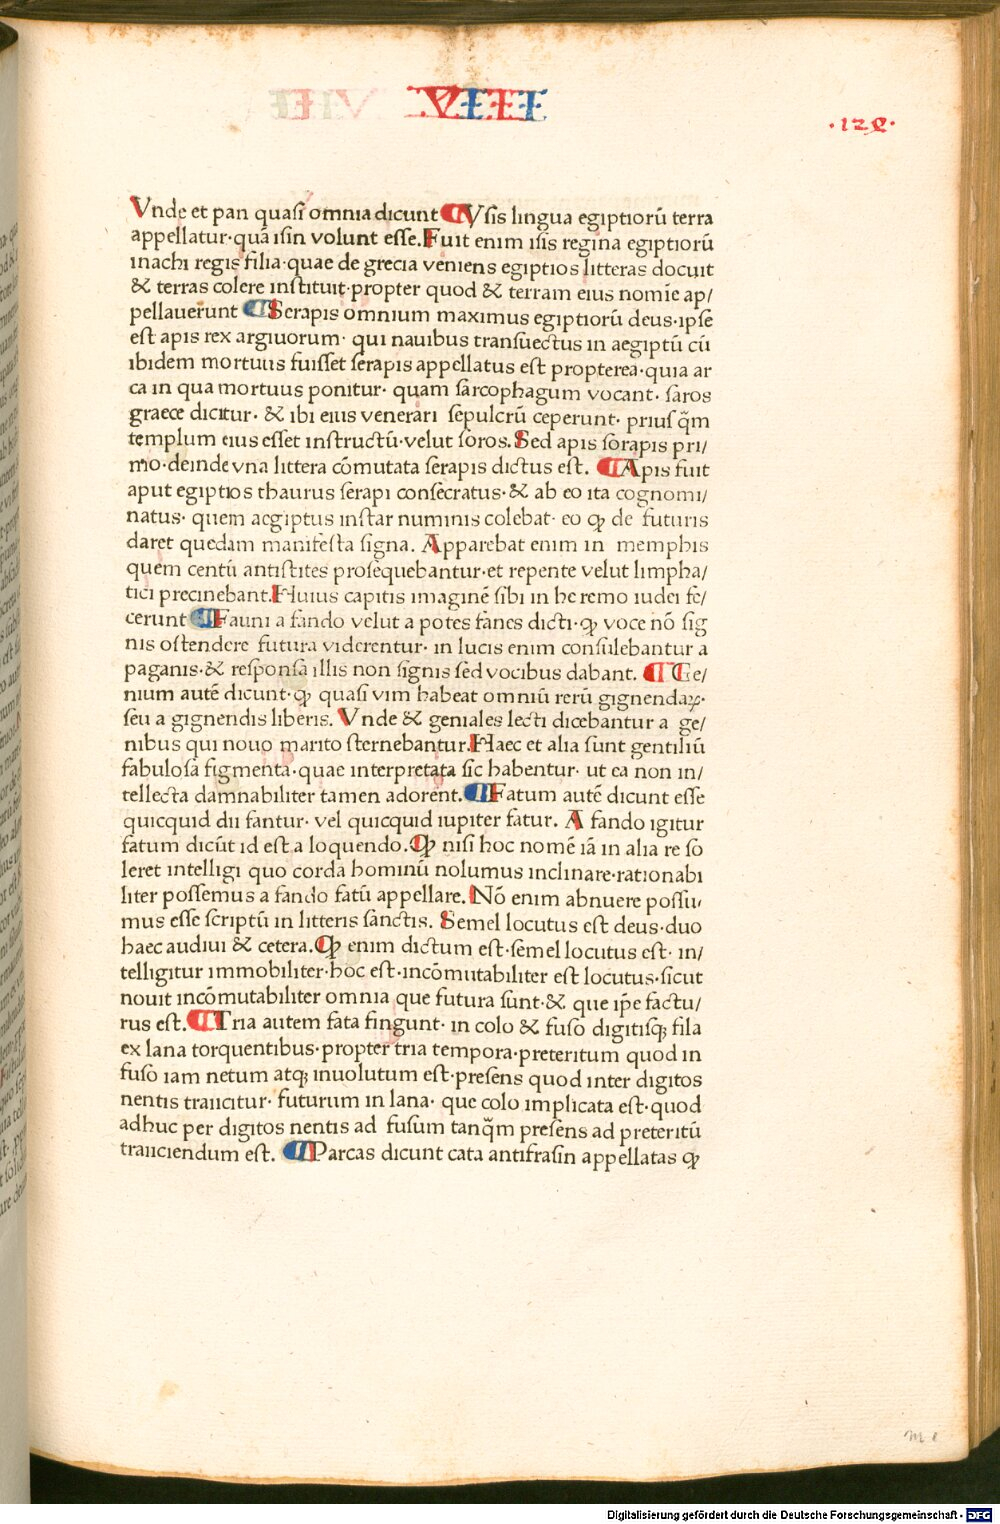 VIII
·129·
Vnde et pan quasi omnia dicunt ¶ Ysis lingua egiptiorũ terra
appellatur·quã isin volunt esse.Fuit enim isis regina egiptiorũ
inachi regis filia·quae de grecia veniens egiptios litteras docuit
& terras colere instituit·propter quod & terram eius nomĩe ap/
pellauerunt ¶ Serapis omnium maximus egiptiorũ deus·ipse
est apis rex argiuorum· qui nauibus transuectus in aegiptũ cũ
ibidem mortuus fuisset serapis appellatus est propterea·quia ar
ca in qua mortuus ponitur· quam sarcophagum vocant· saros
graece dicitur· & ibi eius venerari sepulcrũ ceperunt· prius q̃m
templum eius esset instructũ·velut soros.Sed apis sorapis pri/
mo·deinde vna littera cõmutata serapis dictus est. ¶ Apis fuit
aput egiptios thaurus serapi consecratus·& ab eo ita cognomi/
natus· quem aegiptus instar numinis colebat· eo ꝙ de futuris
daret quedam manifesta signa. Apparebat enim in memphis
quem centũ antistites prosequebantur·et repente velut limpha/
tici precinebant.Huius capitis imaginẽ sibi in heremo iudei fe/
cerunt ¶ Fauni a fando velut a potes fanes dicti·ꝙ voce nõ sig
nis ostendere futura viderentur· in lucis enim consulebantur a
paganis·& responsa illis non signis sed vocibus dabant. ¶ Ge/
nium autẽ dicunt·ꝙ quasi vim habeat omniũ rerũ gignendaꝝ·
seu a gignendis liberis. Vnde & geniales lecti dicebantur a ge/
nibus qui nouo marito sternebantur.Haec et alia sunt gentiliũ
fabulosa figmenta·quae interpretata sic habentur· ut ea non in/
tellecta damnabiliter tamen adorẽnt. ¶ Fatum autẽ dicunt esse
quicquid dii fantur· vel quicquid iupiter fatur. A fando igitur
fatum dicũt id est a loquendo.Ꝙ nisi hoc nomẽ iã in alia re so
leret intelligi quo corda hominũ nolumus inclinare·rationabi
liter possemus a fando fatũ appellare. Nõ enim abnuere possu/
mus esse scriptũ in litteris sanctis. Semel locutus est deus·duo
haec audiui & cetera.Ꝙ enim dictum est·semel locutus est· in/
telligitur immobiliter·hoc est·incõmutabiliter est locutus·sicut
nouit incõmutabiliter omnia que futura sunt·& que ip̃e factu/
rus est. ¶ Tria autem fata fingunt· in colo & fuso digitisqꝫ fila
ex lana torquentibus·propter tria tempora·preteritum quod in
fuso iam netum atqꝫ inuolutum est·presens quod inter digitos
nentis traiicitur· futurum in lana· que colo implicata est·quod
adhuc per digitos nentis ad fusum tanq̃m presens ad preteritũ
traiiciendum est. ¶ Parcas dicunt cata antifrasin appellatas ꝙ
Digitalisierung gefördert durch die Deutsche Forschungsgemeinschaft - DFG